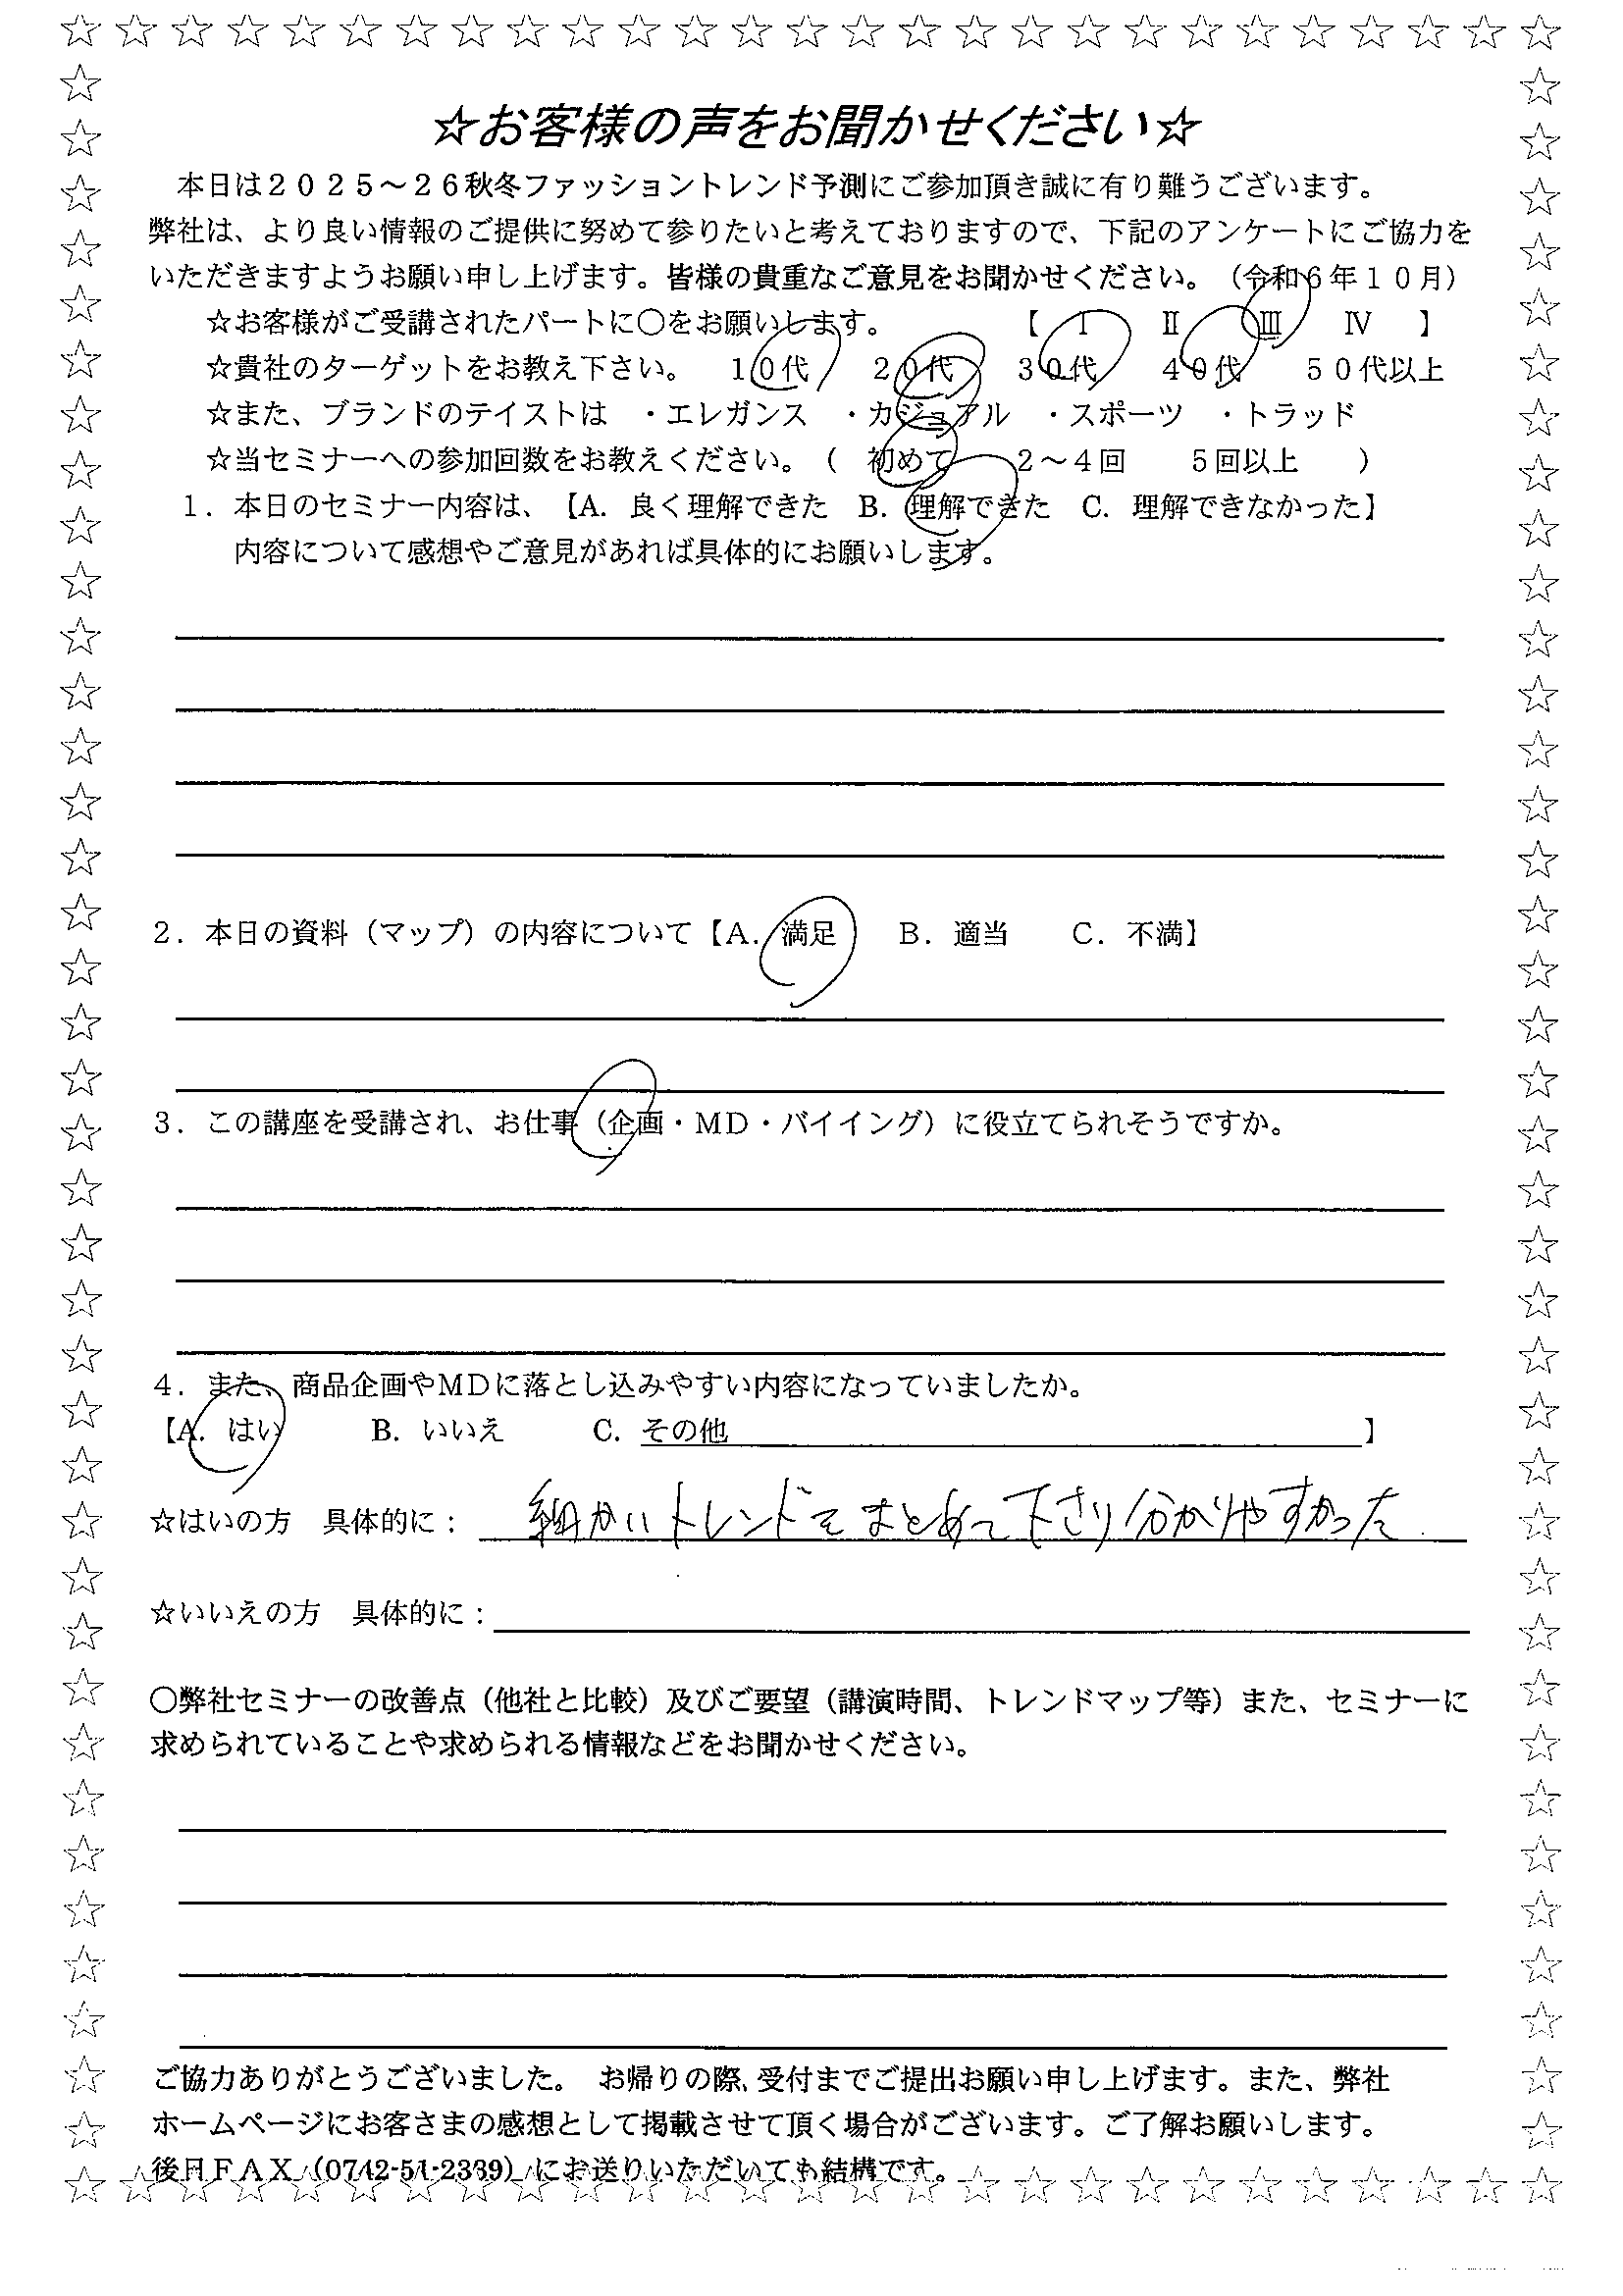 ☆お客様の声をお聞かせください☆
本日は２０２５～２６秋冬ファッショントレンド予測にご参加頂き誠に有り難うございます。
弊社は、より良い情報のご提供に努めて参りたいと考えておりますので、下記のアンケートにご協力を
いただきますようお願い申し上げます。皆様の貴重なご意見をお聞かせください。（令和６年１０月）
☆お客様がご受講されたパートに○をお願いします。 【 Ⅰ Ⅱ Ⅲ Ⅳ 】
☆貴社のターゲットをお教え下さい。 １０代 ２０代 ３０代 ４０代 ５０代以上
☆また、ブランドのテイストは ・エレガンス ・カジュアル ・スポーツ ・トラッド
☆当セミナーへの参加回数をお教えください。（ 初めて ２～４回 ５回以上 ）
１．本日のセミナー内容は、【A．良く理解できた B．理解できた C．理解できなかった】
内容について感想やご意見があれば具体的にお願いします。
２．本日の資料（マップ）の内容について【A．満足 B．適当 C．不満】
３．この講座を受講され、お仕事（企画・MD・バイイング）に役立てられそうですか。
４．また、商品企画やMDに落とし込みやすい内容になっていましたか。
【A．はい B．いいえ C．その他 】
☆はいの方 具体的に： 細かいトレンドをまとめて下さり分かりやすかった
☆いいえの方 具体的に：
○弊社セミナーの改善点（他社と比較）及びご要望（講演時間、トレンドマップ等）また、セミナーに
求められていることや求められる情報などをお聞かせください。
ご協力ありがとうございました。 お帰りの際、受付までご提出お願い申し上げます。また、弊社
ホームページにお客さまの感想として掲載させて頂く場合がございます。ご了解お願いします。
後日ＦＡＸ（0742-51-2339）にお送りいただいても結構です。